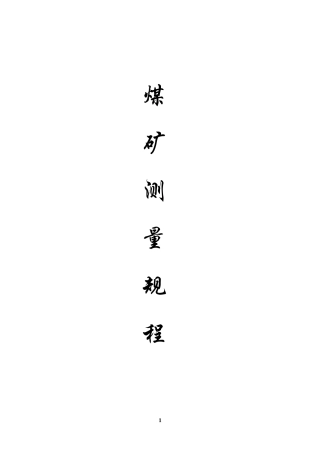 煤矿测量规程
1